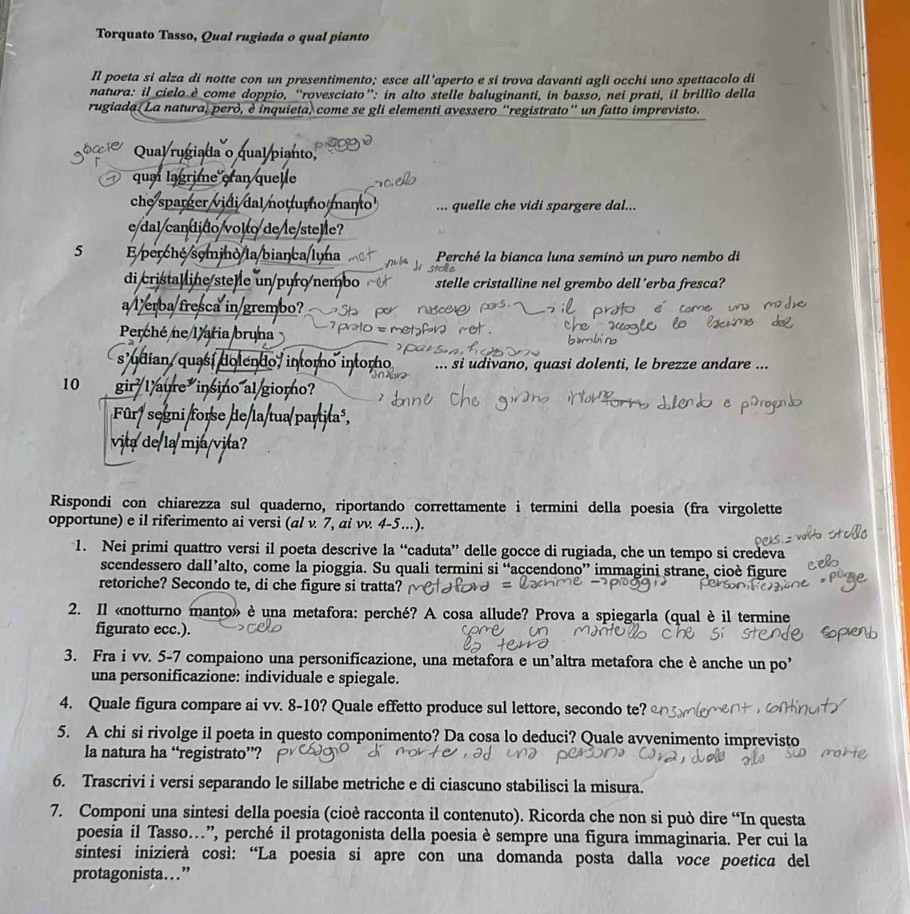 Torquato Tasso, Qual rugiada o qual pianto
Il poeta si alza di notte con un presentimento; esce all'aperto e si trova davanti agli occhi uno spettacolo di
natura: il cielo è come doppio, "rovesciato": in alto stelle baluginanti, in basso, nei prati, il brillìo della
rugiada. La natura, però, è inquieta, come se gli elementi avessero "registrato" un fatto imprevisto.
goccie Qual rugiada o qual pianto, pioggia
quai lagrime eran quelle
→cielo
che sparger vidi dal notturno manto¹ ... quelle che vidi spargere dal...
e dal candido volto de le stelle?
5 E perché seminò la bianca luna met Perché la bianca luna seminò un puro nembo di
di cristalline stelle un puro nembo met stelle cristalline nel grembo dell'erba fresca?
a l'erba fresca in grembo? → sta per nascere pers. → il prato è come una madre
Perché ne l'aria bruna → prato = metafora met. che accoglie lo lacrime del
bambino
s'udian, quasi dolendo, intorno intorno ... si udivano, quasi dolenti, le brezze andare ...
anafora
10 gir² l'aure³ insino al giorno? donne che girano dolendo e piangendo
Fûr⁴ segni forse de la tua partita⁵,
vita de la mia vita?
Rispondi con chiarezza sul quaderno, riportando correttamente i termini della poesia (fra virgolette
opportune) e il riferimento ai versi (al v. 7, ai vv. 4-5...).
pers. = volto stelle
1. Nei primi quattro versi il poeta descrive la "caduta" delle gocce di rugiada, che un tempo si credeva
scendessero dall'alto, come la pioggia. Su quali termini si "accendono" immagini strane, cioè figure cielo
retoriche? Secondo te, di che figure si tratta? metafora = lacrime → pioggia personificazione
2. Il «notturno manto» è una metafora: perché? A cosa allude? Prova a spiegarla (qual è il termine
figurato ecc.). → cielo come un mantello che si stende sopra
la terra
3. Fra i vv. 5-7 compaiono una personificazione, una metafora e un'altra metafora che è anche un po'
una personificazione: individuale e spiegale.
4. Quale figura compare ai vv. 8-10? Quale effetto produce sul lettore, secondo te?
5. A chi si rivolge il poeta in questo componimento? Da cosa lo deduci? Quale avvenimento imprevisto
la natura ha "registrato"? presagio di morte, ad una persona cara, sua morte
6. Trascrivi i versi separando le sillabe metriche e di ciascuno stabilisci la misura.
7. Componi una sintesi della poesia (cioè racconta il contenuto). Ricorda che non si può dire "In questa
poesia il Tasso…", perché il protagonista della poesia è sempre una figura immaginaria. Per cui la
sintesi inizierà così: "La poesia si apre con una domanda posta dalla voce poetica del
protagonista…"